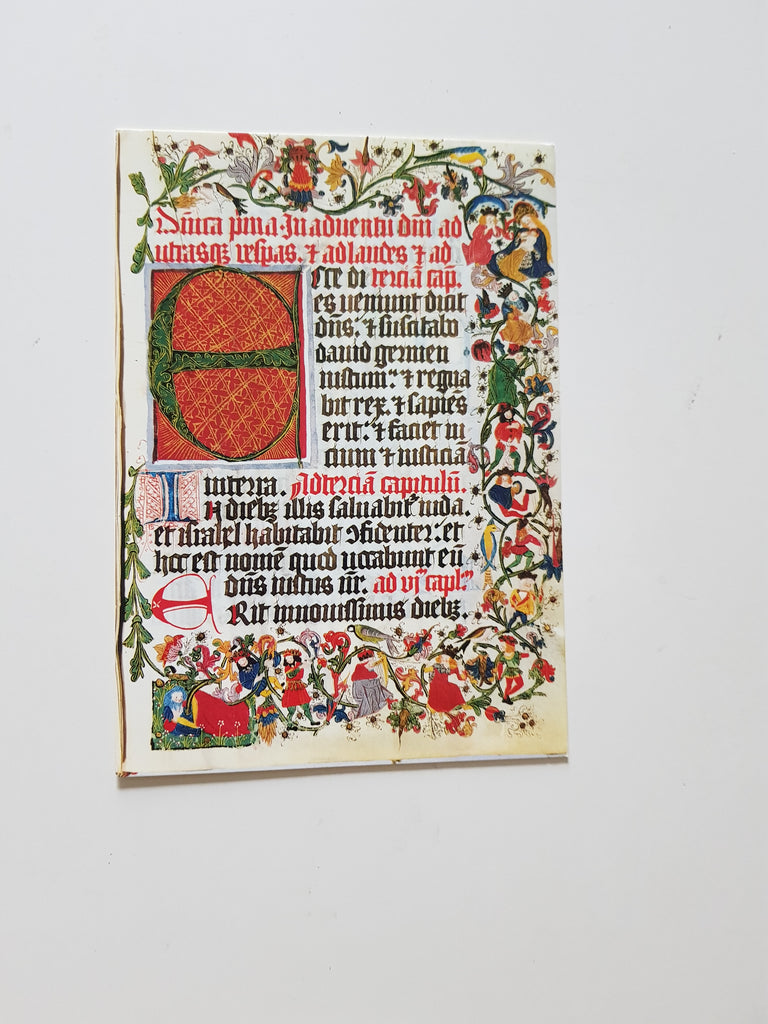 Dn̄ica pima. In aduentu dn̄i ad
utrasqꝫ vesp̄as. ⁊ ad laudes ⁊ ad
Ecce di tercia cap̄.
es veniunt dicit
dn̄s. ⁊ suscitabo
dauid germen
iustum: ⁊ regna
bit rex. ⁊ sapiēs
erit: ⁊ faciet iu
dicium ⁊ iusticiā
in terra. Ad terciā capitulū.
In diebꝫ illis saluabit᷑ iuda.
et israhel habitabit ꝯfidenter: et
hoc est nomē quod vocabunt eū
dn̄s iustus nr̄. ad vjᵃᵐ capl᷑ᵐ
Erit in nouissimis diebꝫ.